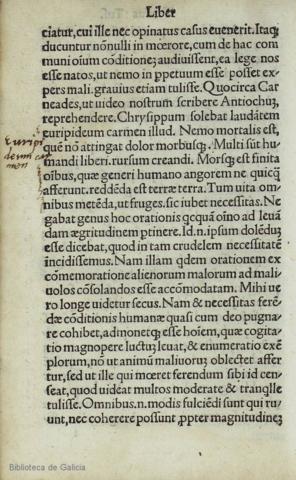 Liber
ciatur, cui ille nec opinatus casus euenerit. Itaq;
ducuntur nõnulli in mœrore, cum de hac com
muni oĩum cõditione; audiuissent, ea lege nos
esse natos, ut nemo in ppetuum esse posset ex-
pers mali. grauius etiam tulisse. Quocirca Car
neades, ut uideo nostrum scribere Antiochuʒ,
reprehendere. Chrysippum solebat laudãtem
euripideum carmen illud. Nemo mortalis est,
quẽ nõ attingat dolor morbusq;. Multi sũt hu
mandi liberi. rursum creandi. Morsq; est finita
oĩbus, quæ generi humano angorem ne quicq̃
afferunt. reddẽda est terræ terra. Tum uita om
nibus metẽda, ut fruges. sic iubet necessitas. Ne
gabat genus hoc orationis qcquã oĩno ad leuã
dam ægritudinem ptinere. Id.n.ipsum dolẽduʒ
esse dicebat, quod in tam crudelem necessitatẽ
ĩncidissemus. Nam illam qdem orationem ex
cõmemoratione alienorum malorum ad mali/
uolos cõsolandos esse accõmodatam. Mihi ue
ro longe uidetur secus. Nam & necessitas ferẽ/
dæ cõditionis humanæ quasi cum deo pugna/
re cohibet, admonetq; esse hoĩem, quæ cogita/
tio magnopere luctuʒ leuat, & enumeratio exẽ
plorum, nõ ut animũ maliuorũ oblectet affer
tur, sed ut ille qui mœret ferendum sibi id cen/
seat, quod uideat multos moderate & tranqlle
tulisse. Omnibus.n. modis fulciẽdi sunt qui ru/
unt, nec coherere possunt ,ppter magnitudineʒ
Euripi
deum car
men
Biblioteca de Galicia